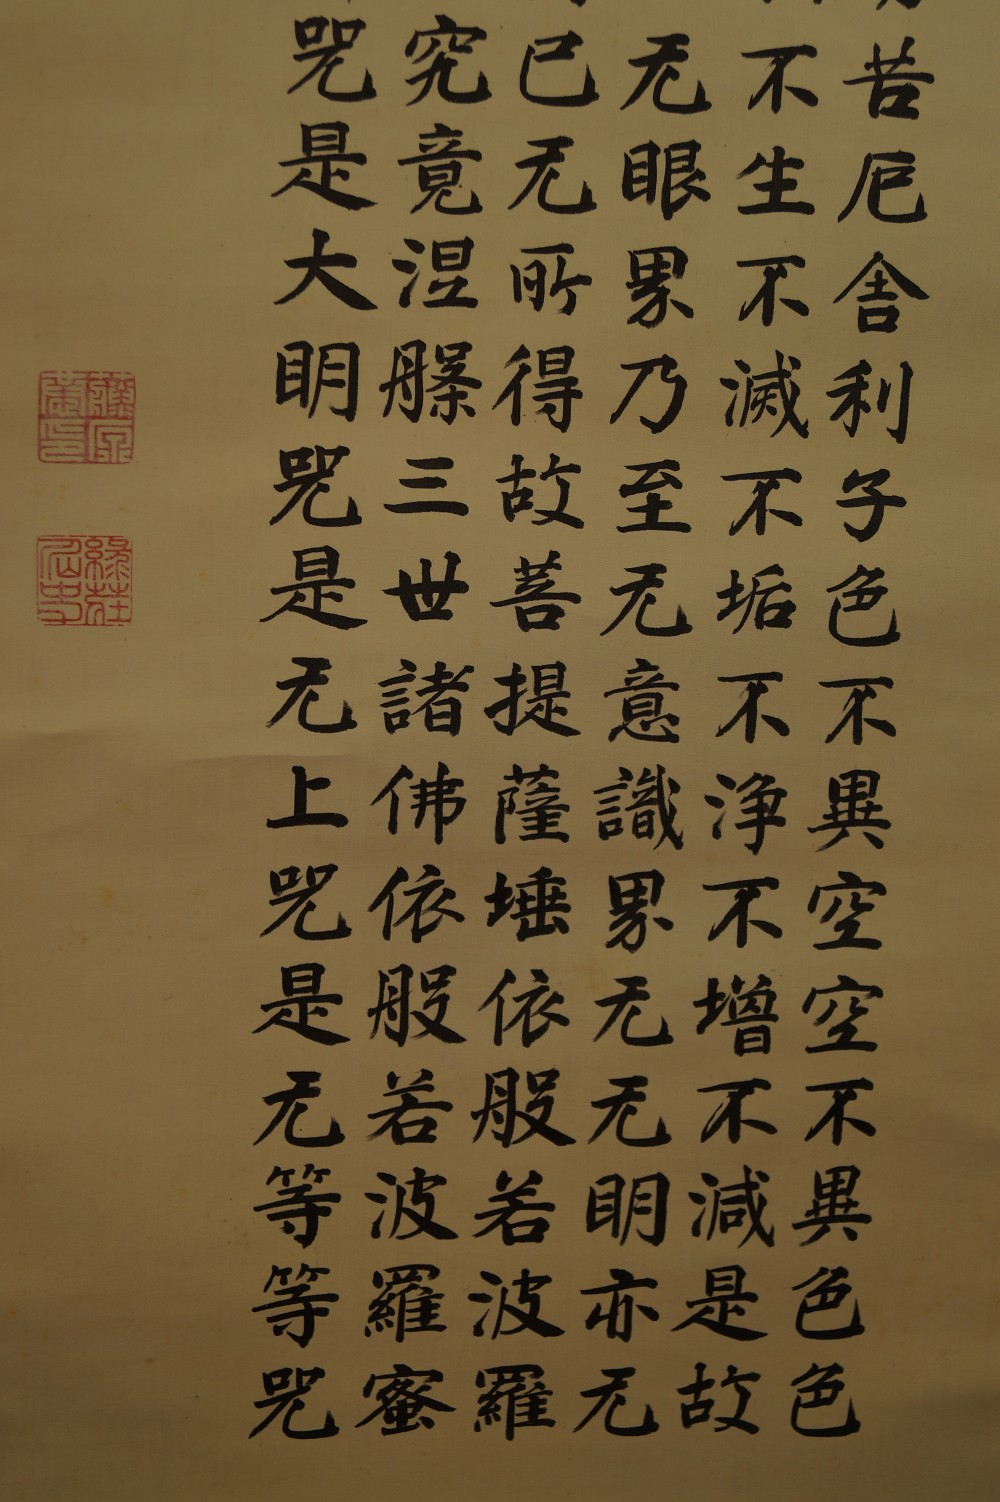 苦厄舍利子色不異空空不異色色
不生不滅不垢不浄不增不減是故
无眼界乃至无意識界无无明亦无
已无所得故菩提薩埵依般若波羅
究竟涅槃三世諸佛依般若波羅蜜
咒是大明咒是无上咒是无等等咒